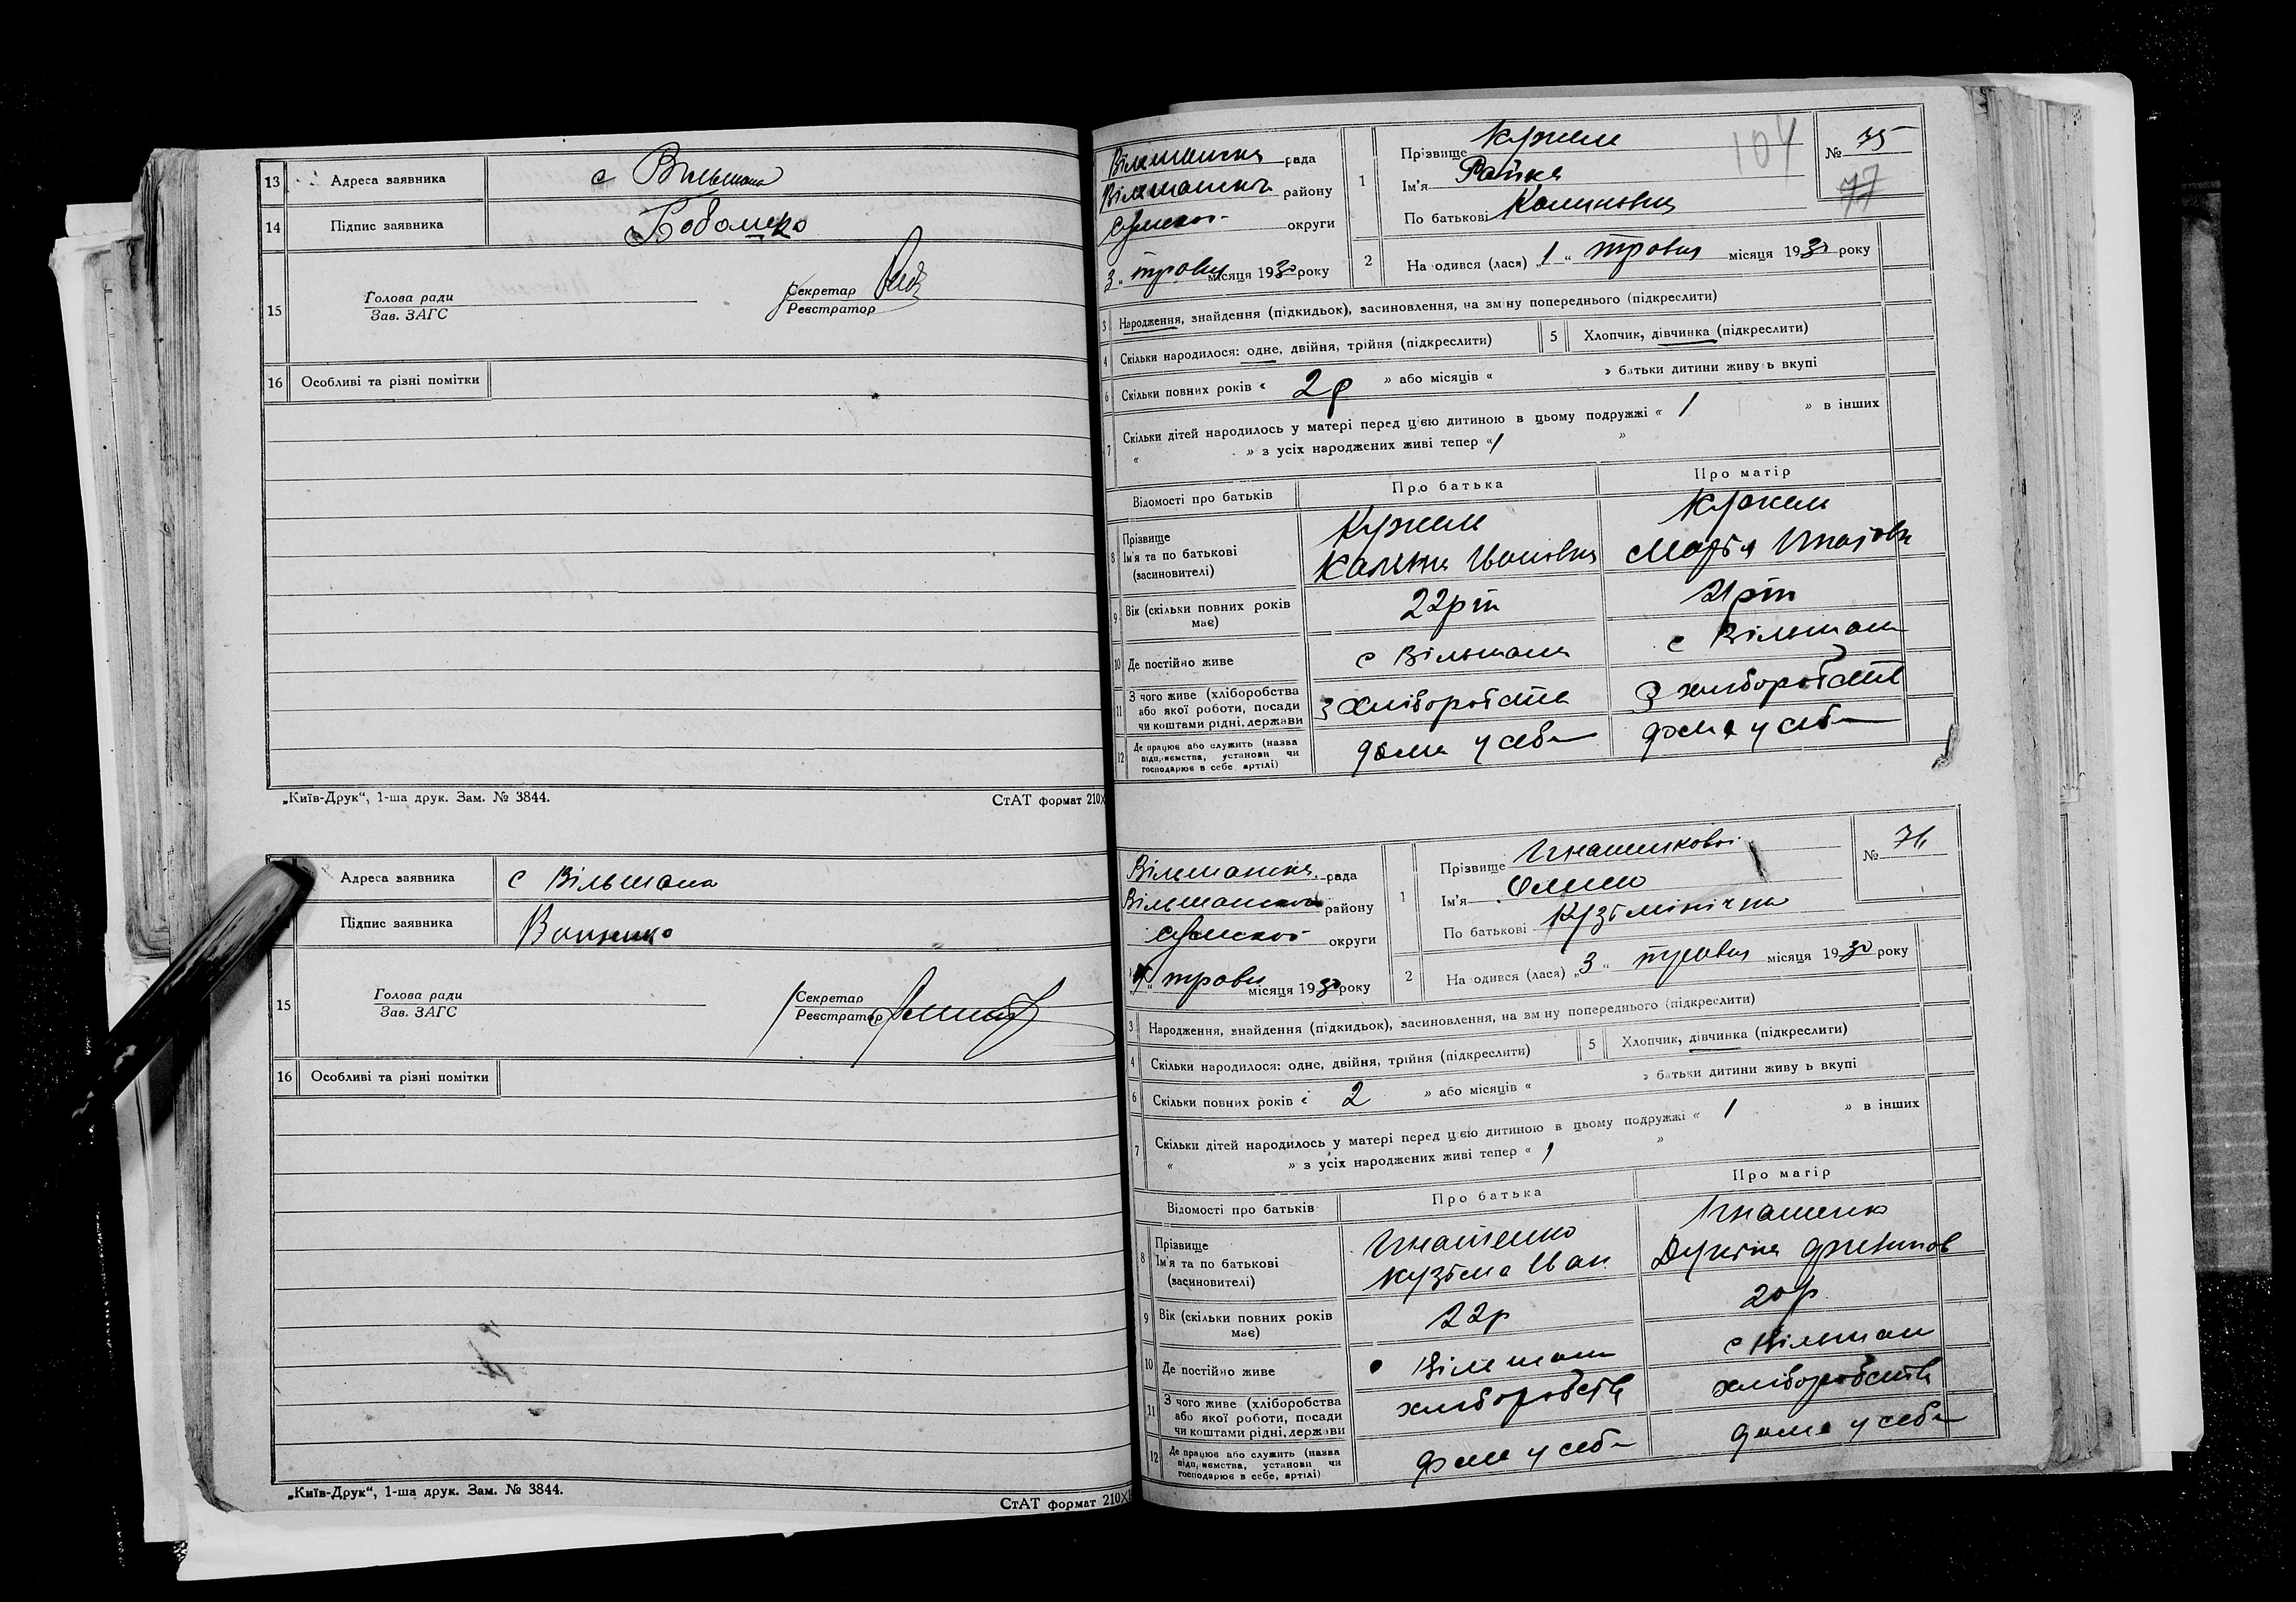 13 Адреса заявника с Вильшана
14 Підпис заявника
15 Голова ради Секретар
Зав. ЗАГС Реєстратор
16 Особливі та різні помітки
„Київ-Друк“, 1-ша друк. Зам. № 3844. СтАТ формат 210×
Адреса заявника с Вільшана
Підпис заявника
15 Голова ради Секретар
Зав. ЗАГС Реєстратор
16 Особливі та різні помітки
„Київ-Друк“, 1-ша друк. Зам. № 3844. СтАТ формат 210×
рада
району
округи
3 „ травня місяця 1930 року
1 Прізвище Кужель
Ім'я Райка
По батькові Калиновна
104
№ 75
77
2 На одився (лася) „1 “ травня місяця 1930 року
3 Народження, знайдення (підкидьок), засиновлення, на зміну попереднього (підкреслити)
4 Скільки народилося: одне, двійня, трійня (підкреслити) 5 Хлопчик, дівчинка (підкреслити)
6 Скільки повних років « 2р » або місяців « » батьки дитини живуть вкупі
7 Скільки дітей народилось у матері перед цією дитиною в цьому подружжі « 1 » в інших
« » з усіх народжених живі тепер «1 »
Відомості про батьків Про батька Про матір
8 Прізвище Кужель Кужель
Ім'я та по батькові
(засиновителі)
9 Вік (скільки повних років має) 22 рт 21 рт
10 Де постійно живе с Вільшана с Вільшан
11 З чого живе (хліборобства
або якої роботи, посади
чи коштами рідні, держави
з хліборобства з хліборобств
12 Де працює або служить (назва
підприємства, установи чи
господарює в себе, артілі)
дома у себе дома у себе
рада
району
округи
травня місяця 1930 року
1 Прізвище
Ім'я
По батькові Кузьмінічна
№ 76
2 На одився (лася) „3 “ травня місяця 1930 року
3 Народження, знайдення (підкидьок), засиновлення, на зміну попереднього (підкреслити)
4 Скільки народилося: одне, двійня, трійня (підкреслити) 5 Хлопчик, дівчинка (підкреслити)
6 Скільки повних років « 2 » або місяців « » батьки дитини живуть вкупі
7 Скільки дітей народилось у матері перед цією дитиною в цьому подружжі « 1 » в інших
« » з усіх народжених живі тепер « 1 »
Відомості про батьків Про батька Про матір
8 Прізвище Игнашенко Игнашенк
Ім'я та по батькові Кузьма Иван
(засиновителі)
9 Вік (скільки повних років має) 22р 20р
10 Де постійно живе Вільшан с Вільшан
11 З чого живе (хліборобства
або якої роботи, посади
чи коштами рідні, держави
хліборобств хліборобств
12 Де працює або служить (назва
підприємства, установи чи
господарює в себе, артілі)
дома у себе дома у себе